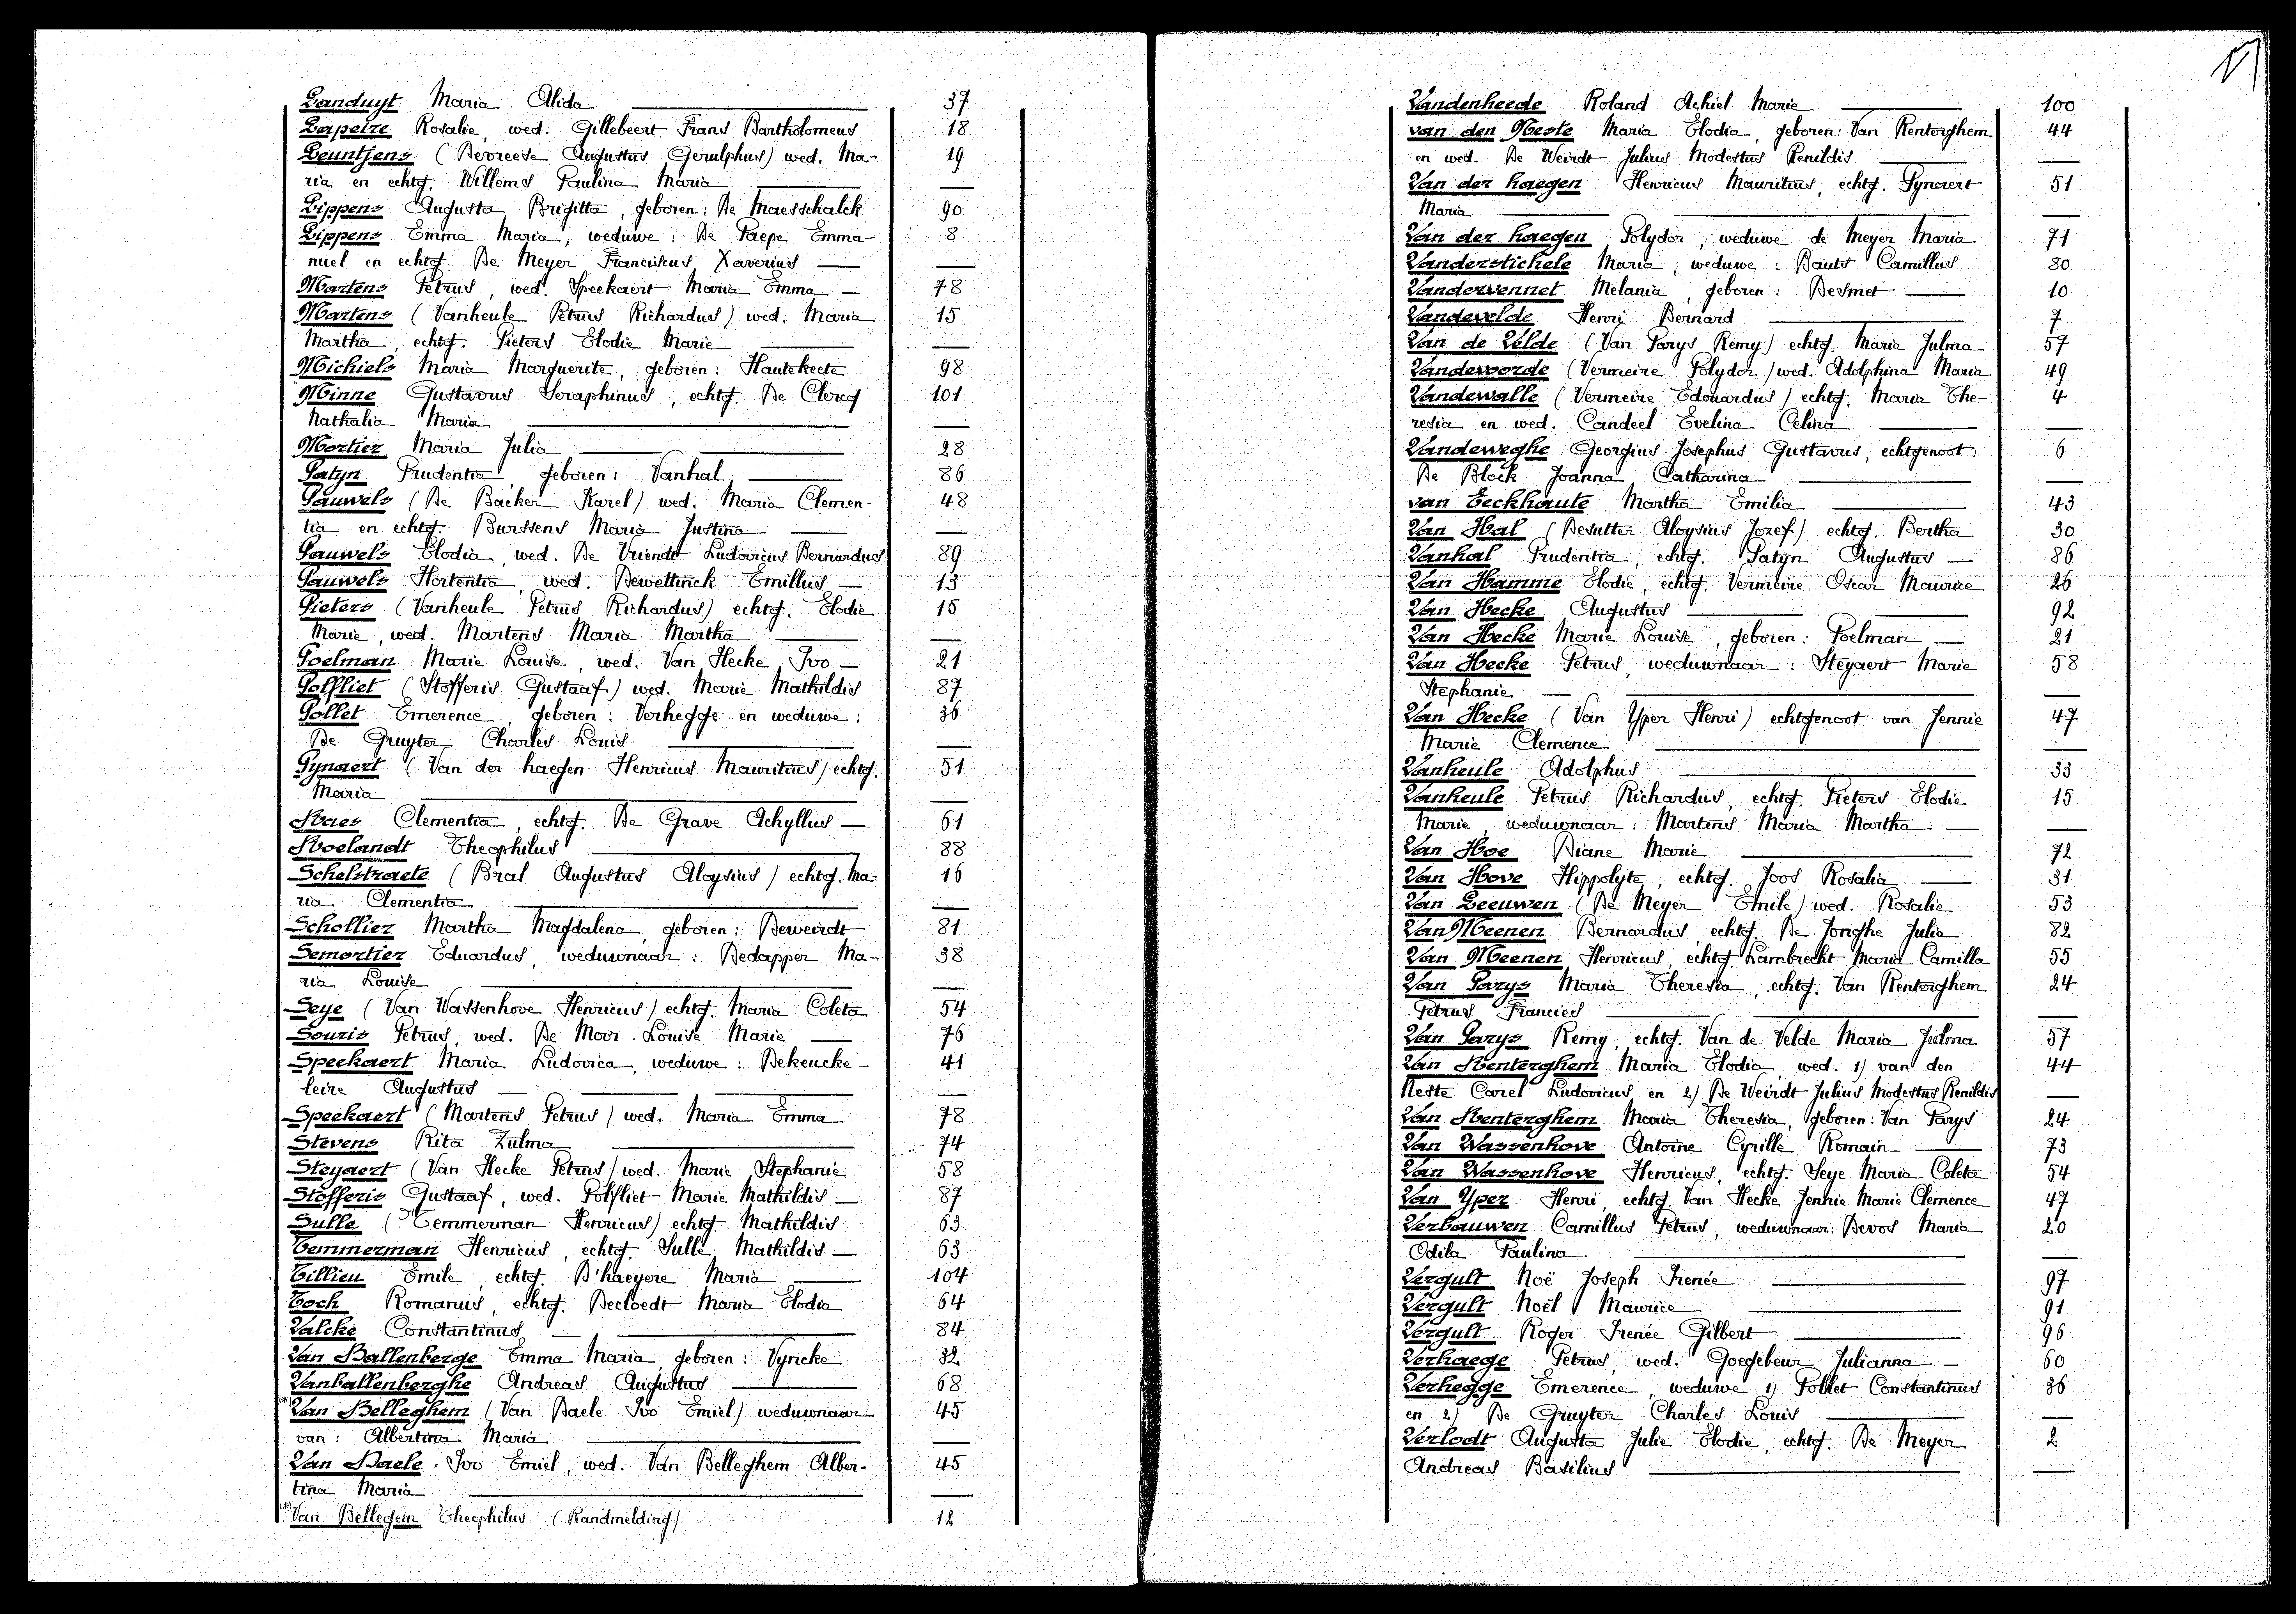 Landuyt Maria Alida 37
Lapeire Rosalie, wed. Gillebeert Frans Bartholomeus 18
Leuntjens (Devreese Augustus Gerulphus) wed. Ma- 19
ria en echtg. Willems Paulina Maria
Lippens Augusta Brigitta, geboren: De Maesschalck 90
Lippens Emma Maria, weduwe: De Paepe Emma- 8
nuel en echtg. De Meyer Franciskus Xaverius
Martens Petrus, wed. Speekaert Maria Emma 78
Martens (Vanheule Petrus Richardus) wed. Maria 15
Martha, echtg. Pieters Elodie Marie
Michiels Maria Marguerite, geboren: Hautekeete 98
Minne Gustavus Seraphinus, echtg. De Clercq 101
Nathalia Maria
Mortier Maria Julia 28
Patyn Prudentia, geboren: Vanhal 86
Pauwels (De Backer Karel) wed. Maria Clemen- 48
tia en echtg. Burssens Maria Justina
Pauwels Elodia, wed. De Vriendt Ludovicus Bernardus 89
Pauwels Hortentia, wed. Dewettinck Emillus 13
Pieters (Vanheule Petrus Richardus) echtg. Elodie 15
Marie, wed. Martens Maria Martha
Poelman Marie Louise, wed. Van Hecke Ivo 21
Polfliet (Stofferis Gustaaf) wed. Marie Mathildis 87
Pollet Emerence, geboren: Verhegge en weduwe: 36
De Gruyter Charles Louis
Pynaert (Van der haegen Henricus Mauritius) echtg. 51
Maria
Raes Clementia, echtg. De Grave Achyllus 61
Roelandt Theophilus 88
Schelstraete (Bral Augustus Aloysius) echtg. Ma- 16
ria Clementia
Schollier Martha Magdalena, geboren: Deweirdt 81
Semortier Eduardus, weduwnaar: Dedapper Ma- 38
ria Louise
Seye (Van Wassenhove Henricus) echtg. Maria Coleta 54
Souris Petrus, wed. De Moor Louise Marie 76
Speekaert Maria Ludovica, weduwe: Dekeucke- 41
leire Augustus
Speekaert (Martens Petrus) wed. Maria Emma 78
Stevens Rita Zulma 74
Steyaert (Van Hecke Petrus) wed. Marie Stephanie 58
Stofferis Gustaaf, wed. Polfliet Marie Mathildis 87
Sulle (Temmerman Henricus) echtg. Mathildis 63
Temmerman Henricus, echtg. Sulle Mathildis 63
Tillieu Emile, echtg. D'haeyere Maria 104
Toch Romanus, echtg. Decloedt Maria Elodia 64
Valcke Constantinus 84
Van Ballenberge Emma Maria, geboren: Vyncke 32
Vanballenberghe Andreas Augustus 68
(*) Van Belleghem (Van Baele Ivo Emiel) weduwnaar 45
van: Albertina Maria
Van Baele Ivo Emiel, wed. Van Belleghem Alber- 45
tina Maria
(*) Van Bellegem Theophilus (Randmelding) 12
Vandenheede Roland Achiel Marie 100
van den Neste Maria Elodia, geboren: Van Renterghem 44
en wed. De Weirdt Julius Modestus Renildis
Van der haegen Henricus Mauritius, echtg. Pynaert 51
Maria
Van der haegen Polydor, weduwe de Meyer Maria 71
Vanderstichele Maria, weduwe: Bauts Camillus 80
Vandervennet Melania, geboren: Desmet 10
Vandevelde Henri Bernard 7
Van de Velde (Van Parys Remy) echtg. Maria Julma 57
Vandevoorde (Vermeire Polydor) wed. Adolphina Maria 49
Vandewalle (Vermeire Edouardus) echtg. Maria The- 4
resia en wed. Candeel Evelina Celina
Vandeweghe Georgius Josephus Gustavus, echtgenoot: 6
De Block Joanna Catharina
van Eeckhaute Martha Emilia 43
Van Hal (Desutter Aloysius Jozef) echtg. Bertha 30
Vanhal Prudentia, echtg. Patyn Augustus 86
Van Hamme Elodie, echtg. Vermeire Oscar Maurice 26
Van Hecke Augustus 92
Van Hecke Marie Louise, geboren: Poelman 21
Van Hecke Petrus, weduwnaar: Steyaert Marie 58
Stephanie
Van Hecke (Van Yper Henri) echtgenoot van Jennie 47
Marie Clemence
Vanheule Adolphus 33
Vanheule Petrus Richardus, echtg. Pieters Elodie 15
Marie, weduwnaar: Martens Maria Martha
Van Hoe Diane Marie 72
Van Hove Hippolyte, echtg. Joos Rosalia 31
Van Leeuwen (De Meyer Emile) wed. Rosalie 53
Van Meenen Bernardus, echtg. De Jonghe Julia 82
Van Meenen Henricus, echtg. Lambrecht Maria Camilla 55
Van Parys Maria Theresia, echtg. Van Renterghem 24
Petrus Francies
Van Parys Remy, echtg. Van de Velde Maria Julma 57
Van Renterghem Maria Elodia, wed. 1) van den 44
Neste Carel Ludovicus, en 2) De Weirdt Julius Modestus Renildis
Van Renterghem Maria Theresia, geboren: Van Parys 24
Van Wassenhove Antoine Cyrille Romain 73
Van Wassenhove Henricus, echtg. Seye Maria Coleta 54
Van Yper Henri, echtg. Van Hecke Jennie Marie Clemence 47
Verbauwen Camillus Petrus, weduwnaar: Devos Maria 20
Odila Paulina
Vergult Noë Joseph Irenée 97
Vergult Noël Maurice 91
Vergult Roger Irenée Gilbert 96
Verhaege Petrus, wed. Goegebeur Julianna 60
Verhegge Emerence, weduwe 1) Pollet Constantinus 36
en 2) De Gruyter Charles Louis
Verlodt Augusta Julie Elodie, echtg. De Meyer 2
Andreas Basilius